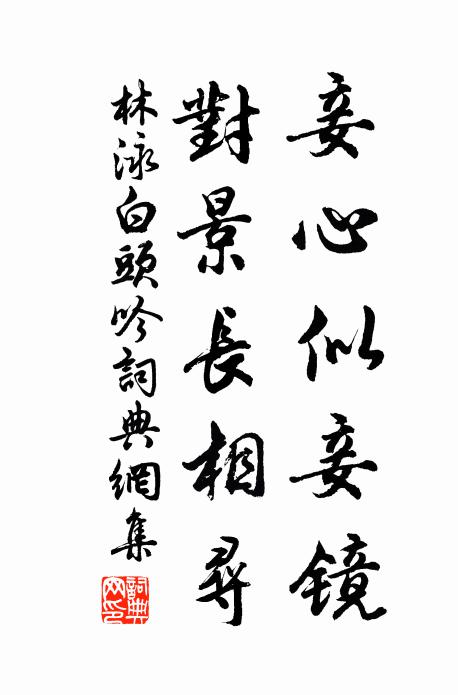 妾心似妾镜
對景長相尋
林泳白頭吟詞典網集
詞典網印